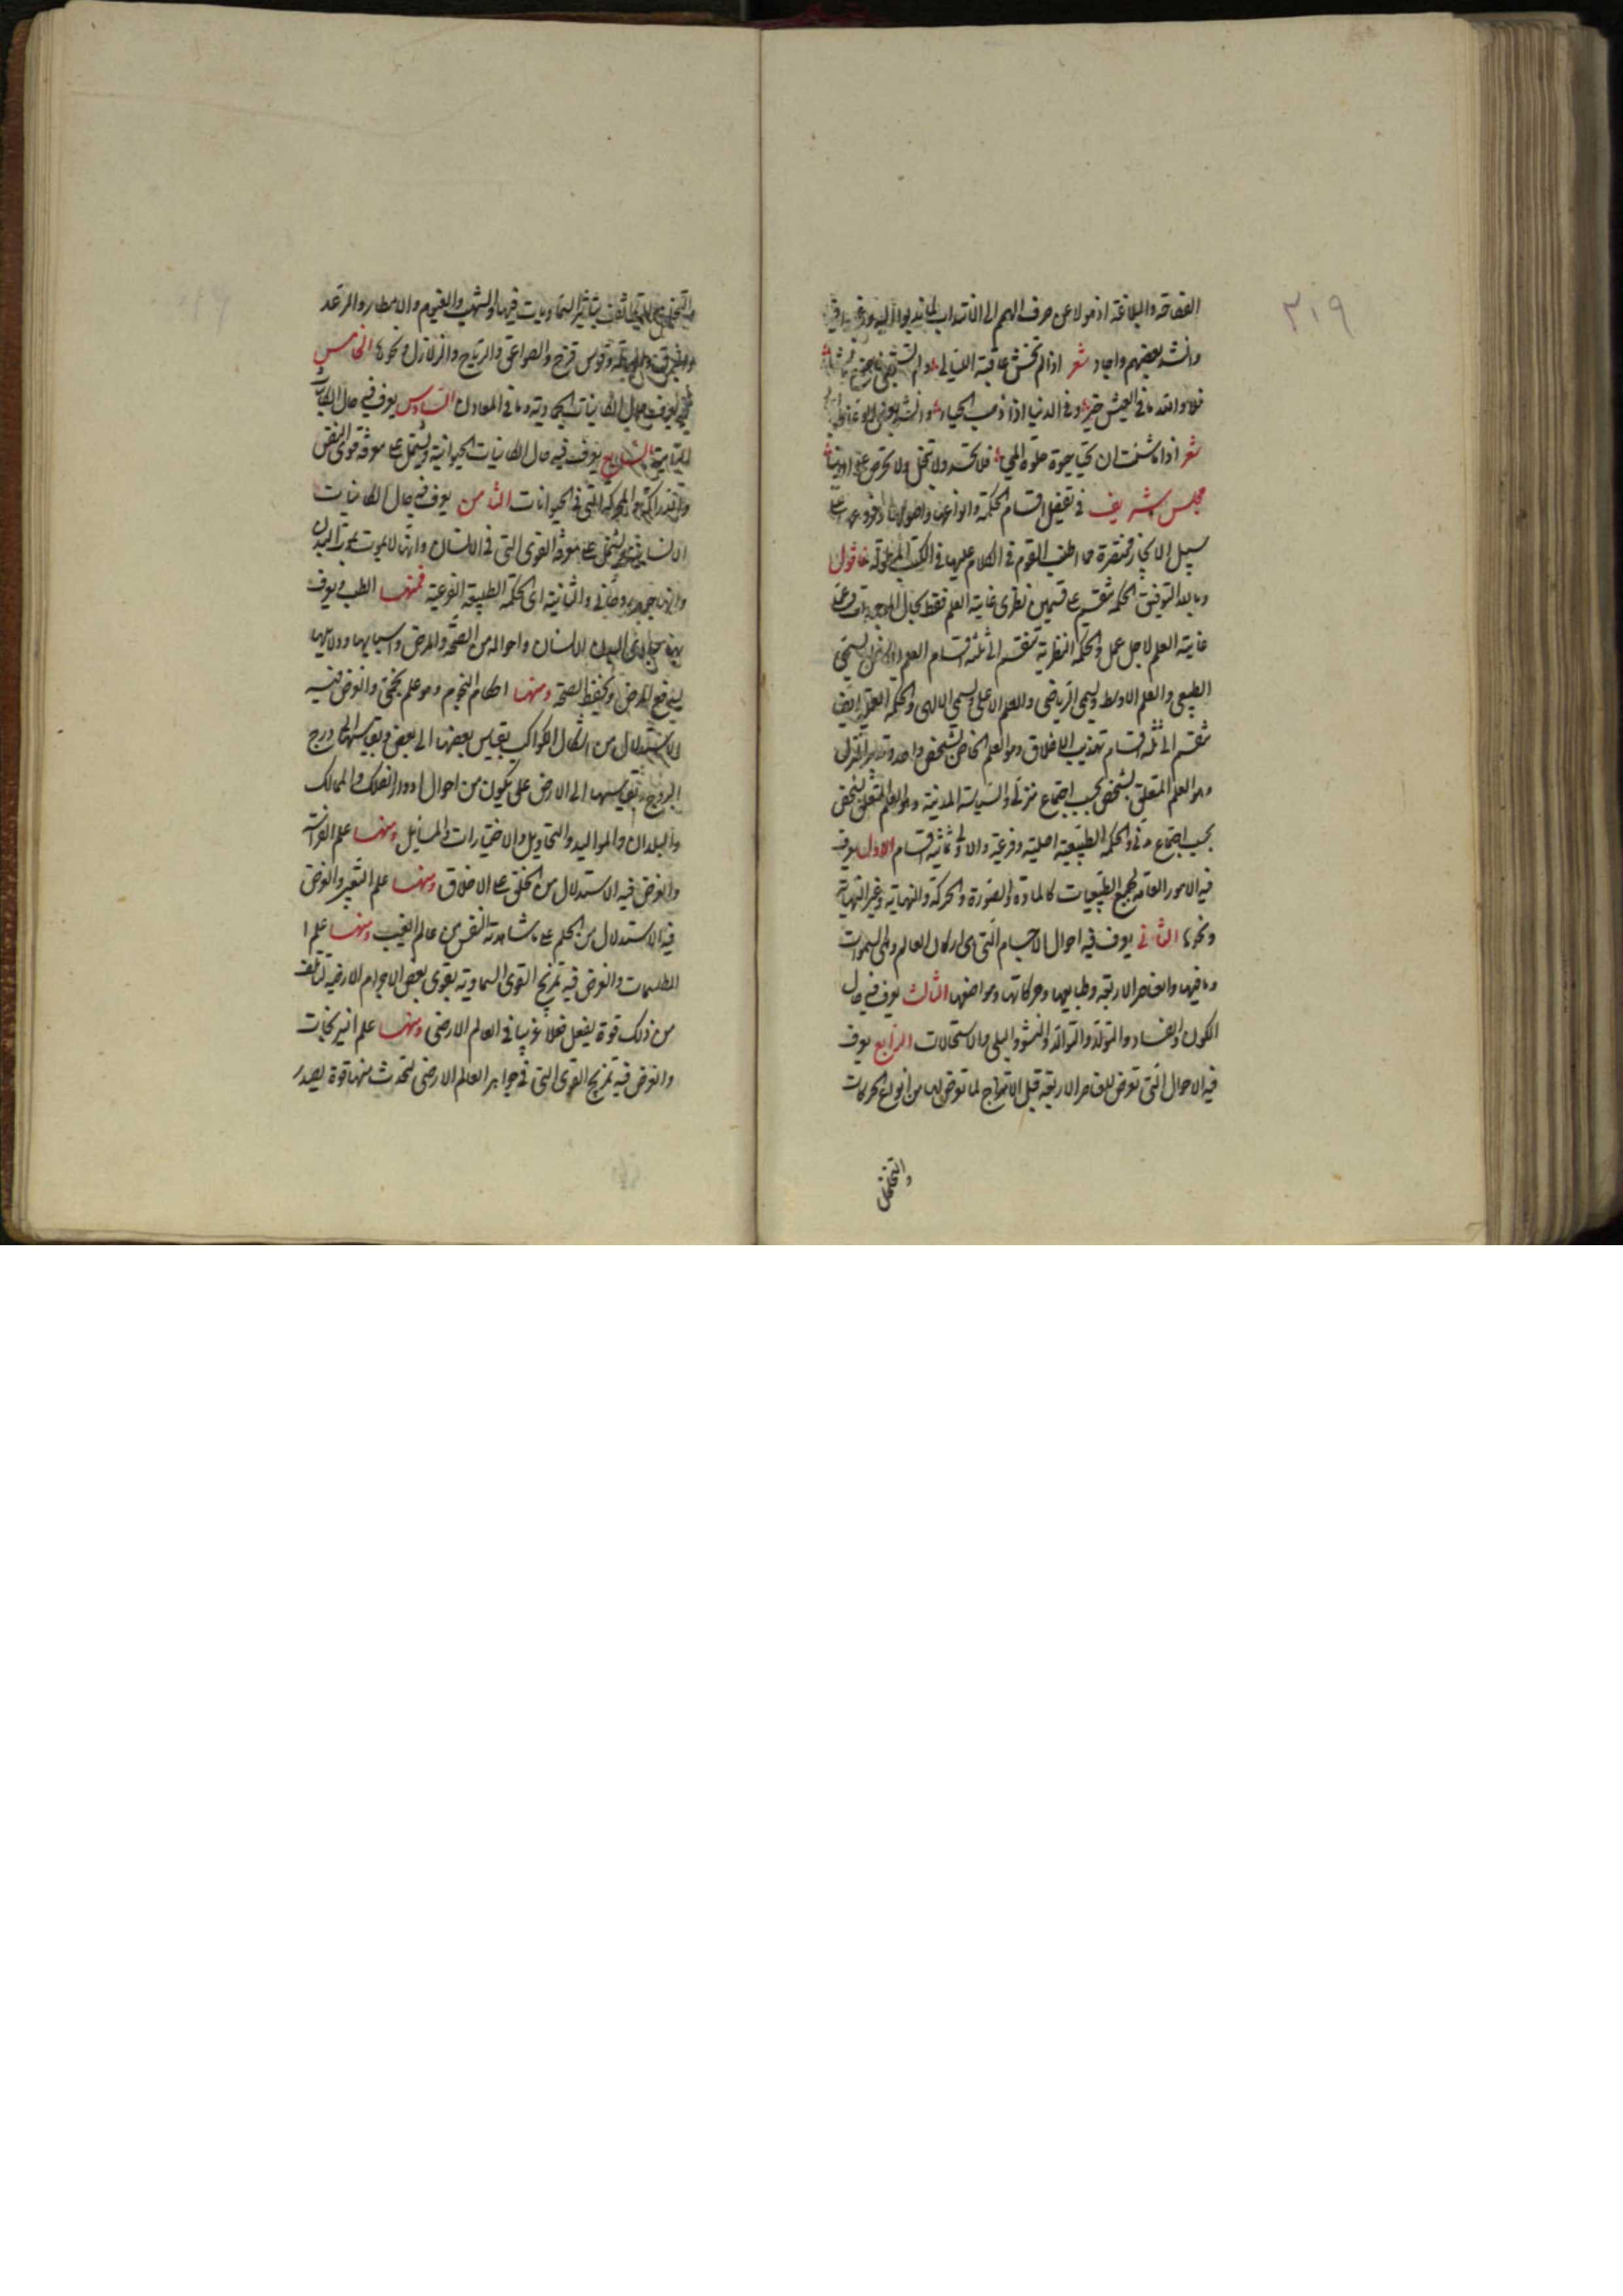 ٣١٩
الفصاحة والبلاغة اذ هو لا عن صرف الهمم الى الانتداب لما ندبوا اليه
وانشد بعضهم واجاد شعر اذا لم تخش عاقبة الليالى ولم تستحى فاصنع ما تشاء
فلا والله ما فى العيش خير ولا فى الدنيا اذا ذهب الحياء وانشد بعض
شعر اذا ما شئت ان تحيا حيوة حلوة المحيا فلا تحسد ولا تبخل ولا تحرص على الدنيا
مجلس شريف فى تفصيل اقسام الحكمة وانواعها واصولها وفروعها على
سبيل الايجاز مختصرة مما اطنب القوم فى الكلام عليها فى الكتب المطولة فاقول
وبالله التوفيق الحكمة تنقسم على قسمين نظرى غاية العلم فقط بحال الموجودات وعملى
غاية العلم لاجل عمل والحكمة النظرية تنقسم الى ثلثة اقسام العلم الادنى ويسمى
الطبيعى والعلم الاوسط ويسمى الرياضى والعلم الاعلى ويسمى الالهى والحكمة العملية ايضا
تنقسم الى ثلثة اقسام تهذيب الاخلاق وهو العلم الخاص بشخص واحد وتدبير المنزل
وهو العلم المتعلق بشخص بحسب اجتماع منزلى والسياسة المدنية وهو العلم المتعلق بشخص
بحسب اجتماع مدنى والحكمة الطبيعية اصلية وفرعية والاولى ثمانية اقسام الاول يعرف
فيه الامور العامة لجميع الطبيعيات كالمادة والصورة والحركة والنهاية وغير النهاية
ونحوها الثانى يعرف فيه احوال الاجسام التى هى اركان العالم وهى السموات
وما فيها والعناصر الاربعة وطبايعها وحركاتها ومواضعها الثالث يعرف فيه حال
الكون والفساد والتولد والتوالد والنشو والبلى والاستحالات الرابع يعرف
فيه الاحوال التى تعرض للعناصر الاربعة قبل الامتزاج لما تعرض لها من انواع الحركات
والتخلخل
والتخلخل والتكاثف بتاثير السماويات فيها والشهب والغيوم والامطار والرعد
والبرق والهالة وقوس قزح والصواعق والرياح والزلازل ونحوها الخامس
يعرف حال الكاينات الجمادية وما فى المعادن السادس يعرف فيه حال الكاينات
النباتية السابع يعرف فيه حال الكاينات الحيوانية ويشتمل على معرفة قوى النفس
المدركة والمحركة التى فى الحيوانات الثامن يعرف فيه حال الكاينات
الانسانية ويشتمل على معرفة القوى التى فى الانسان وانها لا تموت بموت البدن
وانها جوهر روحانى والثانية اى الحكمة الطبيعية الفرعية فمنها الطب ويعرف
فيه مبادى البدن الانسان واحواله من الصحة والمرض واسبابهما ودلايلهما
ليدفع المرض ويحفظ الصحة ومنها احكام النجوم وهو علم تخمينى والغرض فيه
الاستدلال من اشكال الكواكب بقياس بعضها الى بعض وبقياسها الى درج
البروج وبقياسها الى الارض على ما يكون من احوال ادوار الفلك والممالك
والبلدان والمواليد والتحاويل والاختيارات والمسايل ومنها علم الفراسة
والغرض فيه الاستدلال من الخلق على الاخلاق ومنها علم التعبير والغرض
فيه الاستدلال من الحلم على ما شاهدته النفس من عالم الغيب ومنها علم ا
الطلسمات والغرض فيه تمزيج القوى السماوية بقوى بعض الاجرام الارضية لتتألف
من ذلك قوة يفعل فعلا غريبا فى العالم الارضى ومنها علم النيرنجات
والغرض فيه تمزيج القوى التى فى جواهر العالم الارضى لتحدث منها قوة يصدر